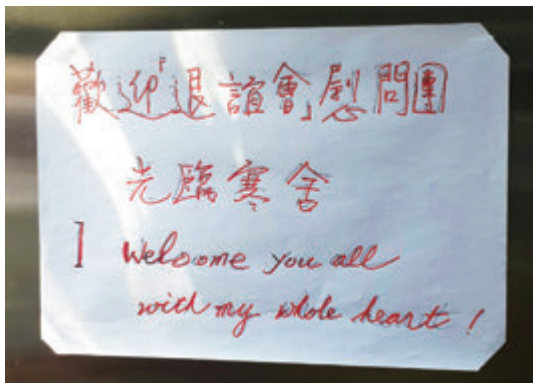 歡迎「退誼會」慰問團
光臨寒舍
I Welcome you all
with my whole heart!